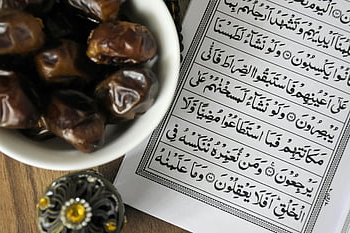 اَلْيَوْمَ
اَيْدِيْهِمْ وَتَشْهَدُ اَرْجُلُهُمْ بِمَا
يَكْسِبُوْنَ ۝ وَلَوْ نَشَآءُ لَطَمَسْنَا
عَلٰٓى اَعْيُنِهِمْ فَاسْتَبَقُوا الصِّرَاطَ فَاَنّٰى
يُبْصِرُوْنَ ۝ وَلَوْ نَشَآءُ لَمَسَخْنٰهُمْ عَلٰى
مَكَانَتِهِمْ فَمَا اسْتَطَاعُوْا مُضِيًّا وَّلَا
يَرْجِعُوْنَ ۝ وَمَنْ نُّعَمِّرْهُ نُنَكِّسْهُ فِى
الْخَلْقِ اَفَلَا يَعْقِلُوْنَ ۝ وَمَا عَلَّمْنٰهُ